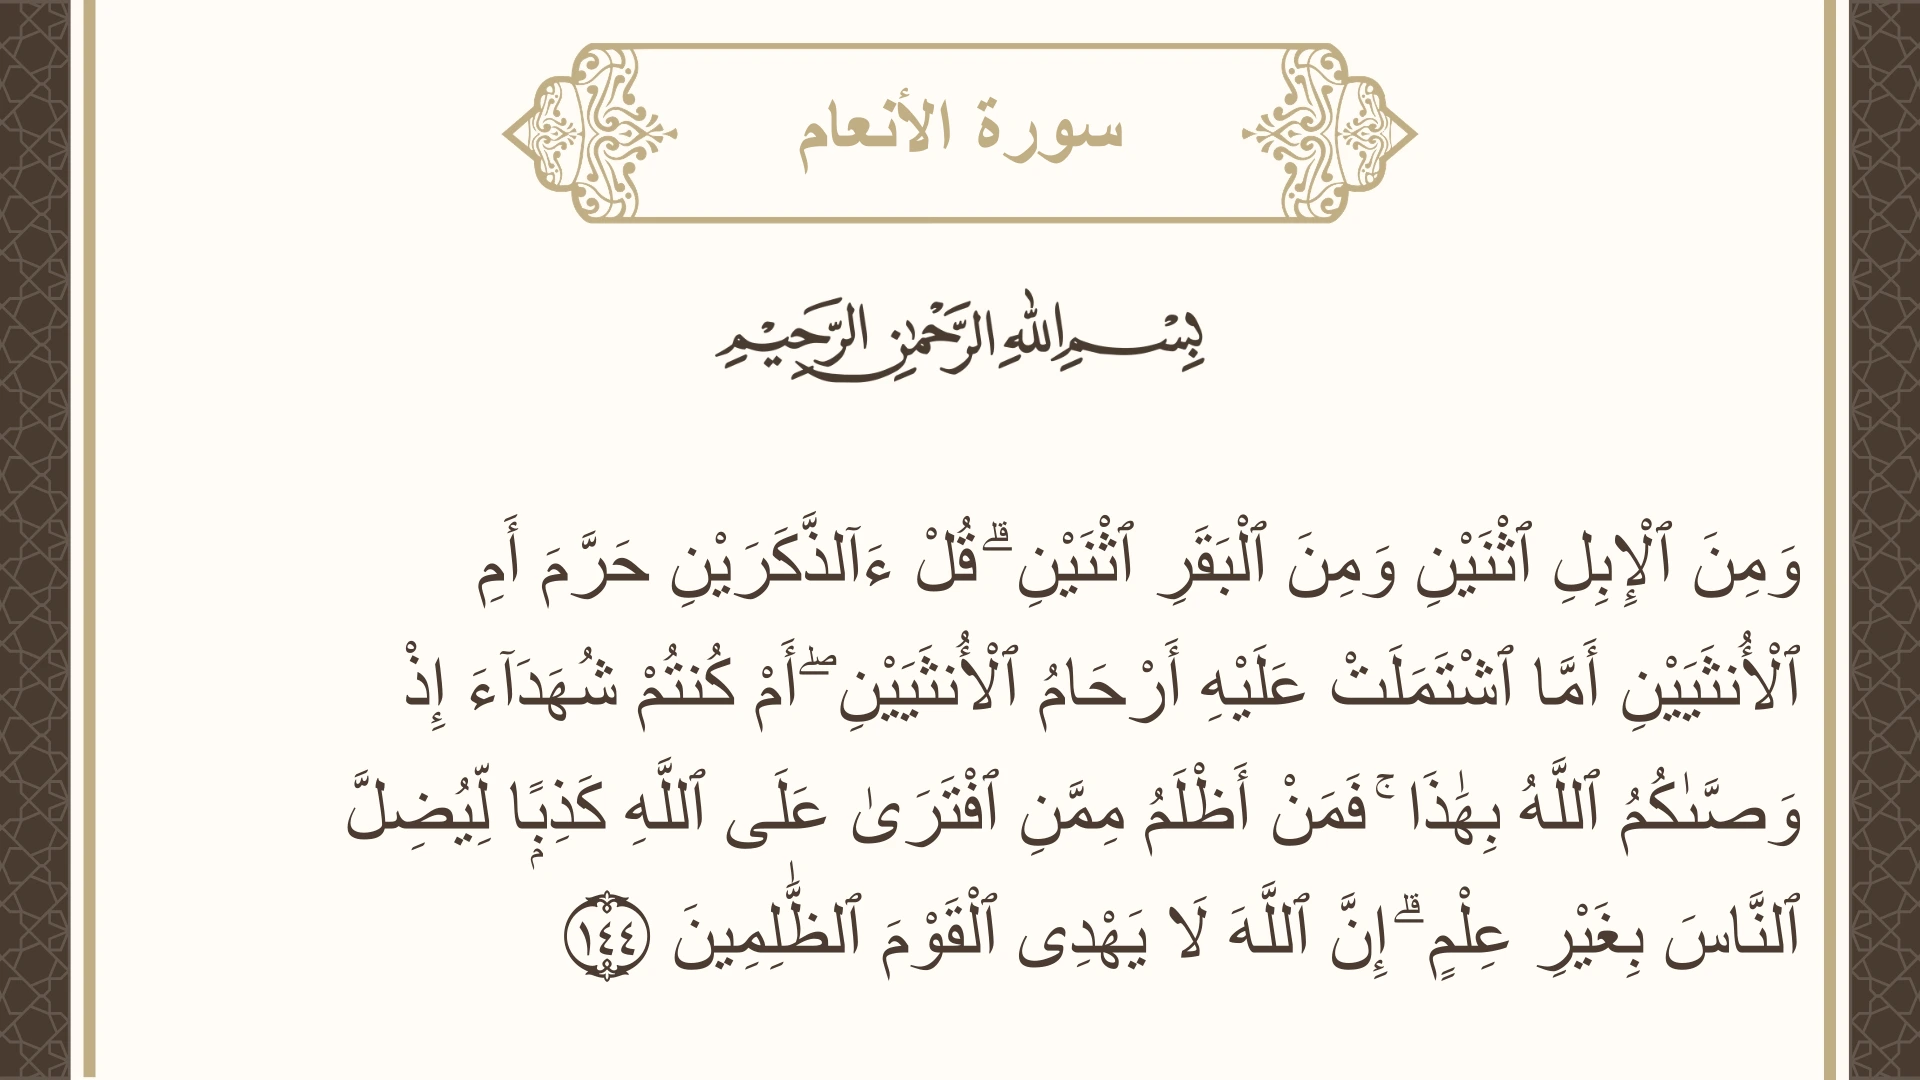 سورة الأنعام
بِسْمِ اللهِ الرَّحْمٰنِ الرَّحِيْمِ
وَمِنَ ٱلْإِبِلِ ٱثْنَيْنِ وَمِنَ ٱلْبَقَرِ ٱثْنَيْنِ ۗ قُلْ ءَآلذَّكَرَيْنِ حَرَّمَ أَمِ
ٱلْأُنثَيَيْنِ أَمَّا ٱشْتَمَلَتْ عَلَيْهِ أَرْحَامُ ٱلْأُنثَيَيْنِ ۖ أَمْ كُنتُمْ شُهَدَآءَ إِذْ
وَصَّىٰكُمُ ٱللَّهُ بِهَٰذَا ۚ فَمَنْ أَظْلَمُ مِمَّنِ ٱفْتَرَىٰ عَلَى ٱللَّهِ كَذِبًۭا لِّيُضِلَّ
ٱلنَّاسَ بِغَيْرِ عِلْمٍ ۗ إِنَّ ٱللَّهَ لَا يَهْدِى ٱلْقَوْمَ ٱلظَّٰلِمِينَ ١٤٤